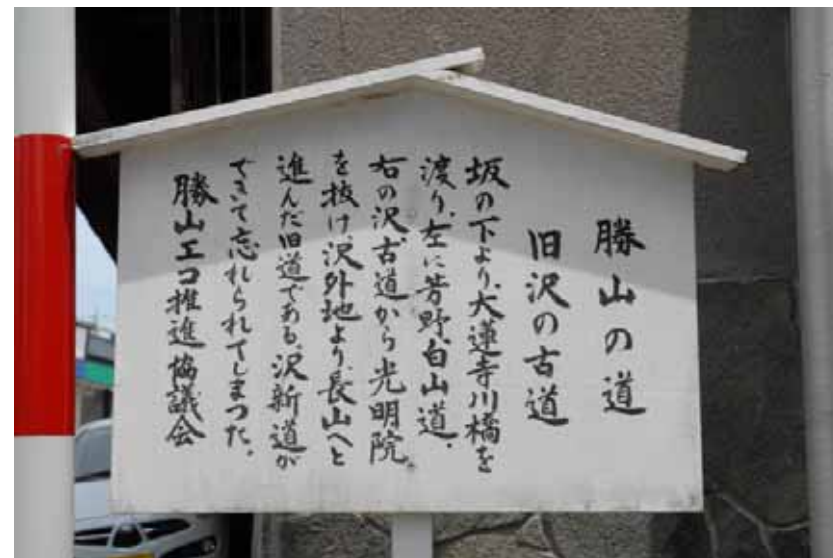 勝山の道
旧沢の古道
坂の下より、大蓮寺川橋を
渡り、左に芳野、白山道、
右の沢、古道から光明院。
を抜け、沢外地より、長山へと
進んだ旧道である。沢新道が
できて忘れられてしまつた。
勝山エコ推進協議会